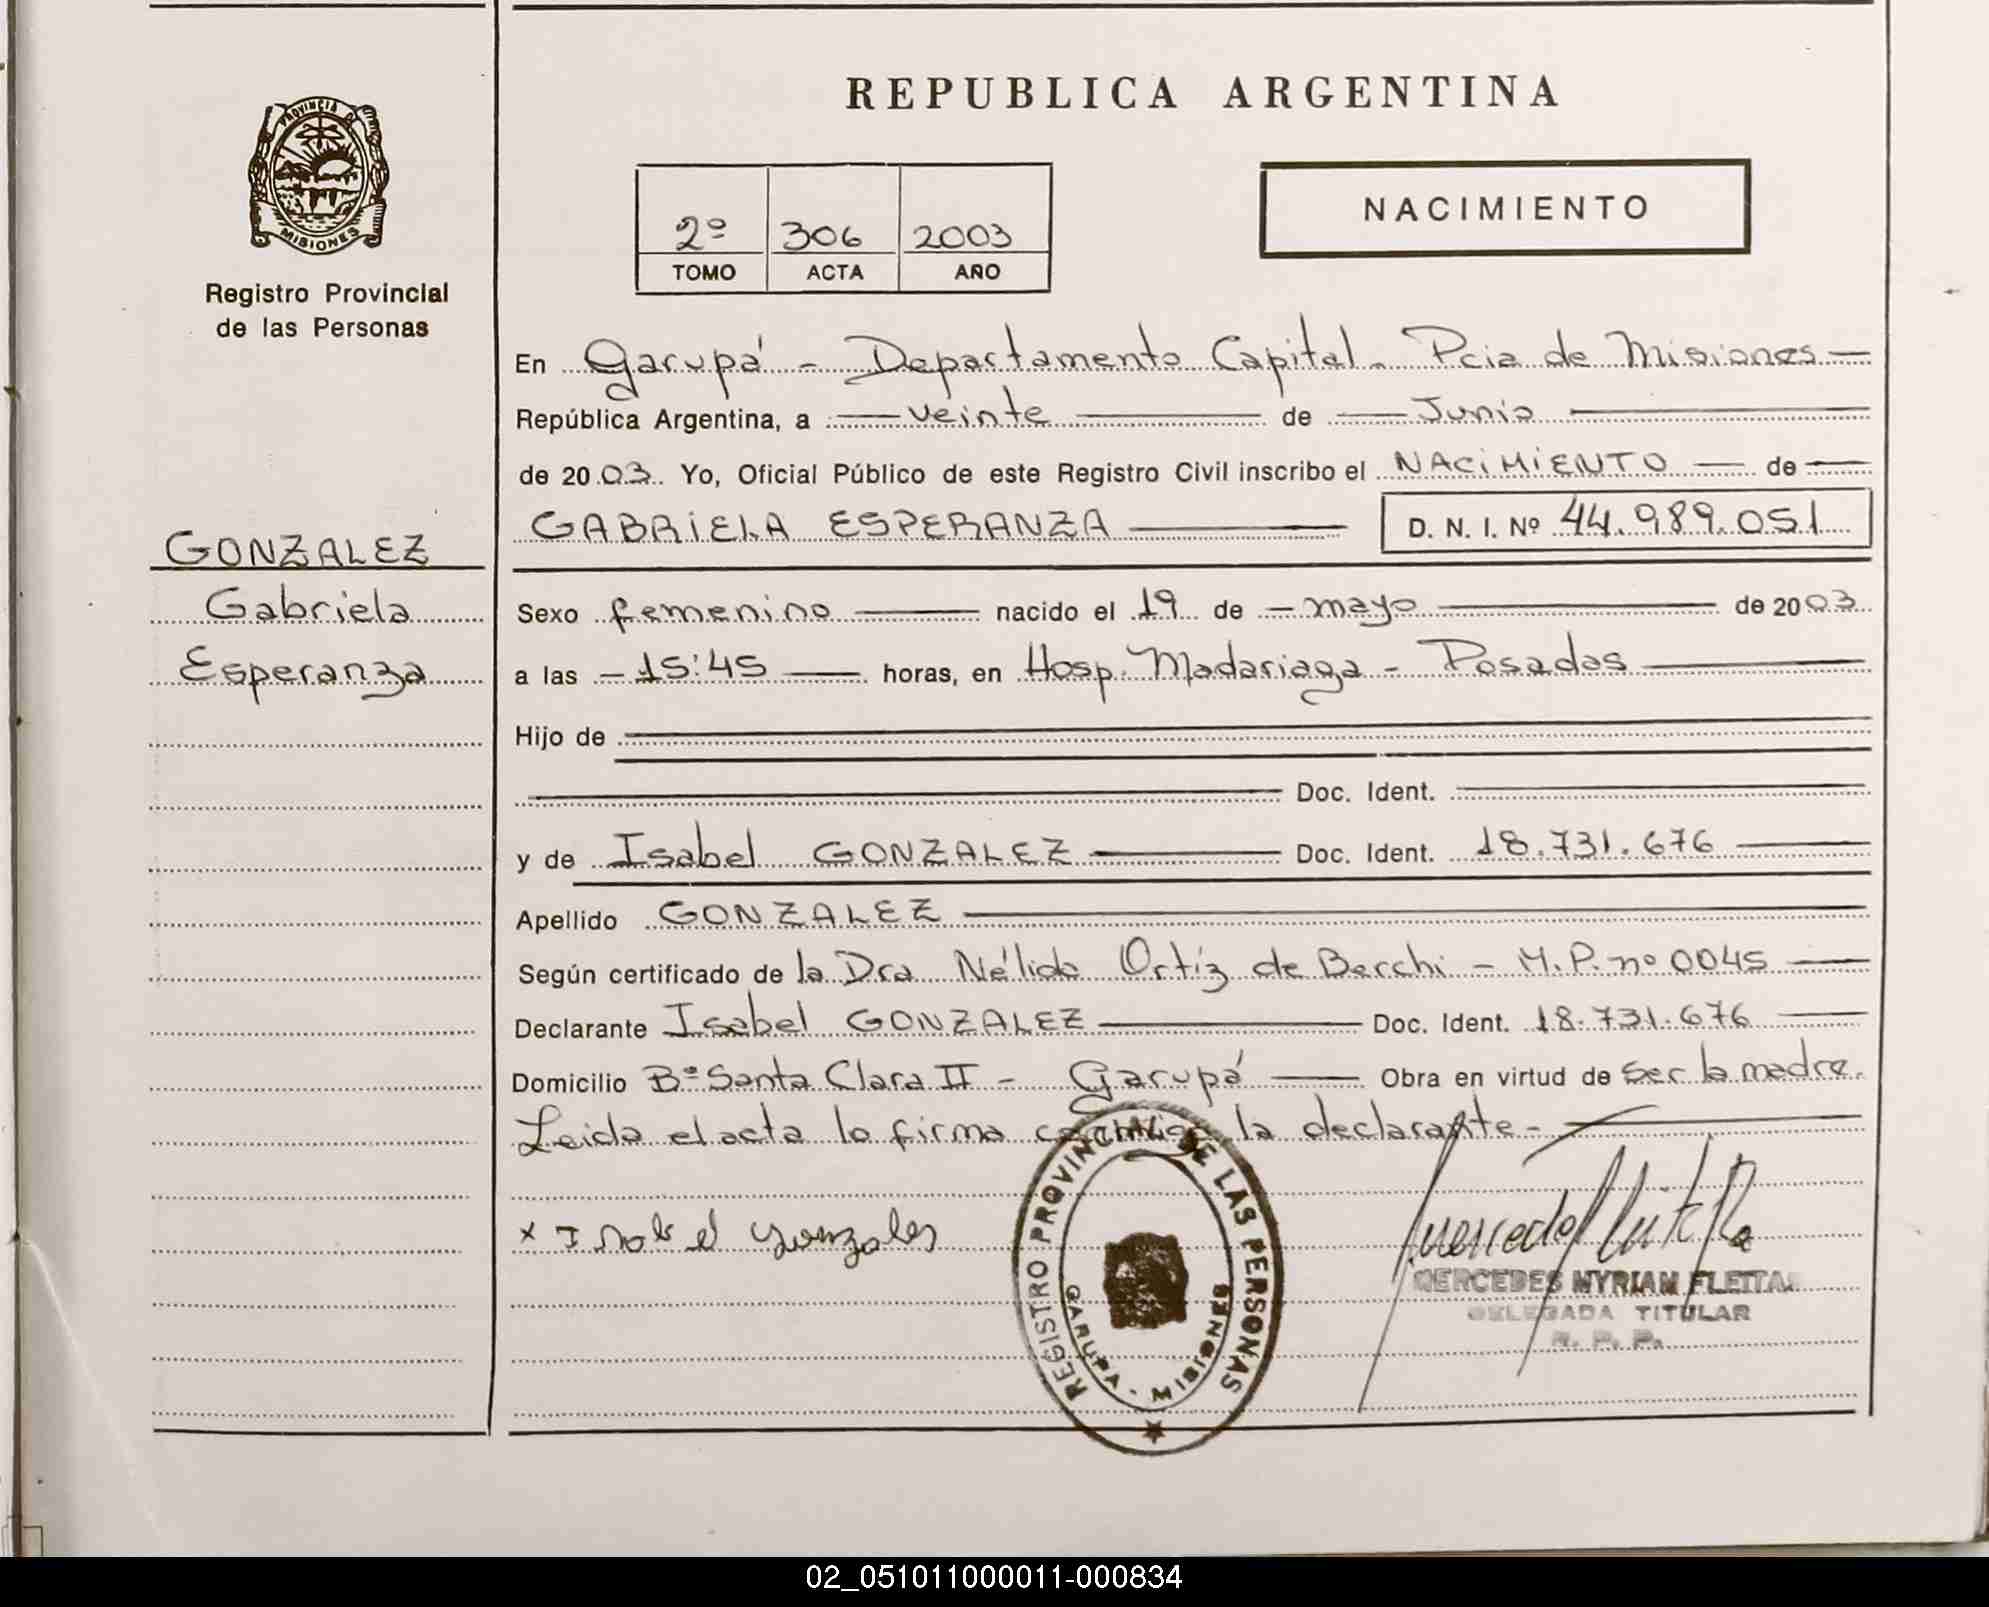 REPUBLICA ARGENTINA
PROVINCIA DE
MISIONES
Registro Provincial
de las Personas
2º 306 2003
TOMO ACTA AÑO
NACIMIENTO
En Garupá - Departamento Capital. Pcia de Misiones
República Argentina, a veinte de Junio
de 2003. Yo, Oficial Público de este Registro Civil inscribo el NACIMIENTO de
GABRIELA ESPERANZA D. N. I. Nº 44.989.051
GONZALEZ
Gabriela
Esperanza
Sexo femenino nacido el 19 de mayo de 2003
a las 15:45 horas, en Hosp. Madariaga - Posadas
Hijo de
Doc. Ident.
y de Isabel GONZALEZ Doc. Ident. 18.731.676
Apellido GONZALEZ
Según certificado de la Dra Nélida Ortíz de Berchi - M.P. nº 0045
Declarante Isabel GONZALEZ Doc. Ident. 18.731.676
Domicilio Bº Santa Clara II - Garupá Obra en virtud de ser la madre.
Leida el acta la firma conmigo la declarante -
x Isabel Gonzales
REGISTRO PROVINCIAL DE LAS PERSONAS
GARUPA - MISIONES
MERCEDES MYRIAN FLEITAS
DELEGADA TITULAR
R. P. P.
02_051011000011-000834